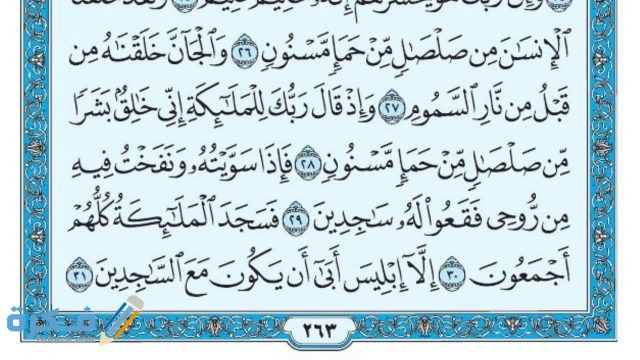 وَإِنَّ رَبَّكَ هُوَ يَحْشُرُهُمْ إِنَّهُۥ حَكِيمٌ عَلِيمٌ ٢٥ وَلَقَدْ خَلَقْنَا
ٱلْإِنسَٰنَ مِن صَلْصَٰلٍ مِّنْ حَمَإٍ مَّسْنُونٍ ٢٦ وَٱلْجَآنَّ خَلَقْنَٰهُ مِن
قَبْلُ مِن نَّارِ ٱلسَّمُومِ ٢٧ وَإِذْ قَالَ رَبُّكَ لِلْمَلَٰٓئِكَةِ إِنِّى خَٰلِقٌۢ بَشَرًا
مِّن صَلْصَٰلٍ مِّنْ حَمَإٍ مَّسْنُونٍ ٢٨ فَإِذَا سَوَّيْتُهُۥ وَنَفَخْتُ فِيهِ
مِن رُّوحِى فَقَعُوا۟ لَهُۥ سَٰجِدِينَ ٢٩ فَسَجَدَ ٱلْمَلَٰٓئِكَةُ كُلُّهُمْ
أَجْمَعُونَ ٣٠ إِلَّآ إِبْلِيسَ أَبَىٰٓ أَن يَكُونَ مَعَ ٱلسَّٰجِدِينَ ٣١
٢٦٣